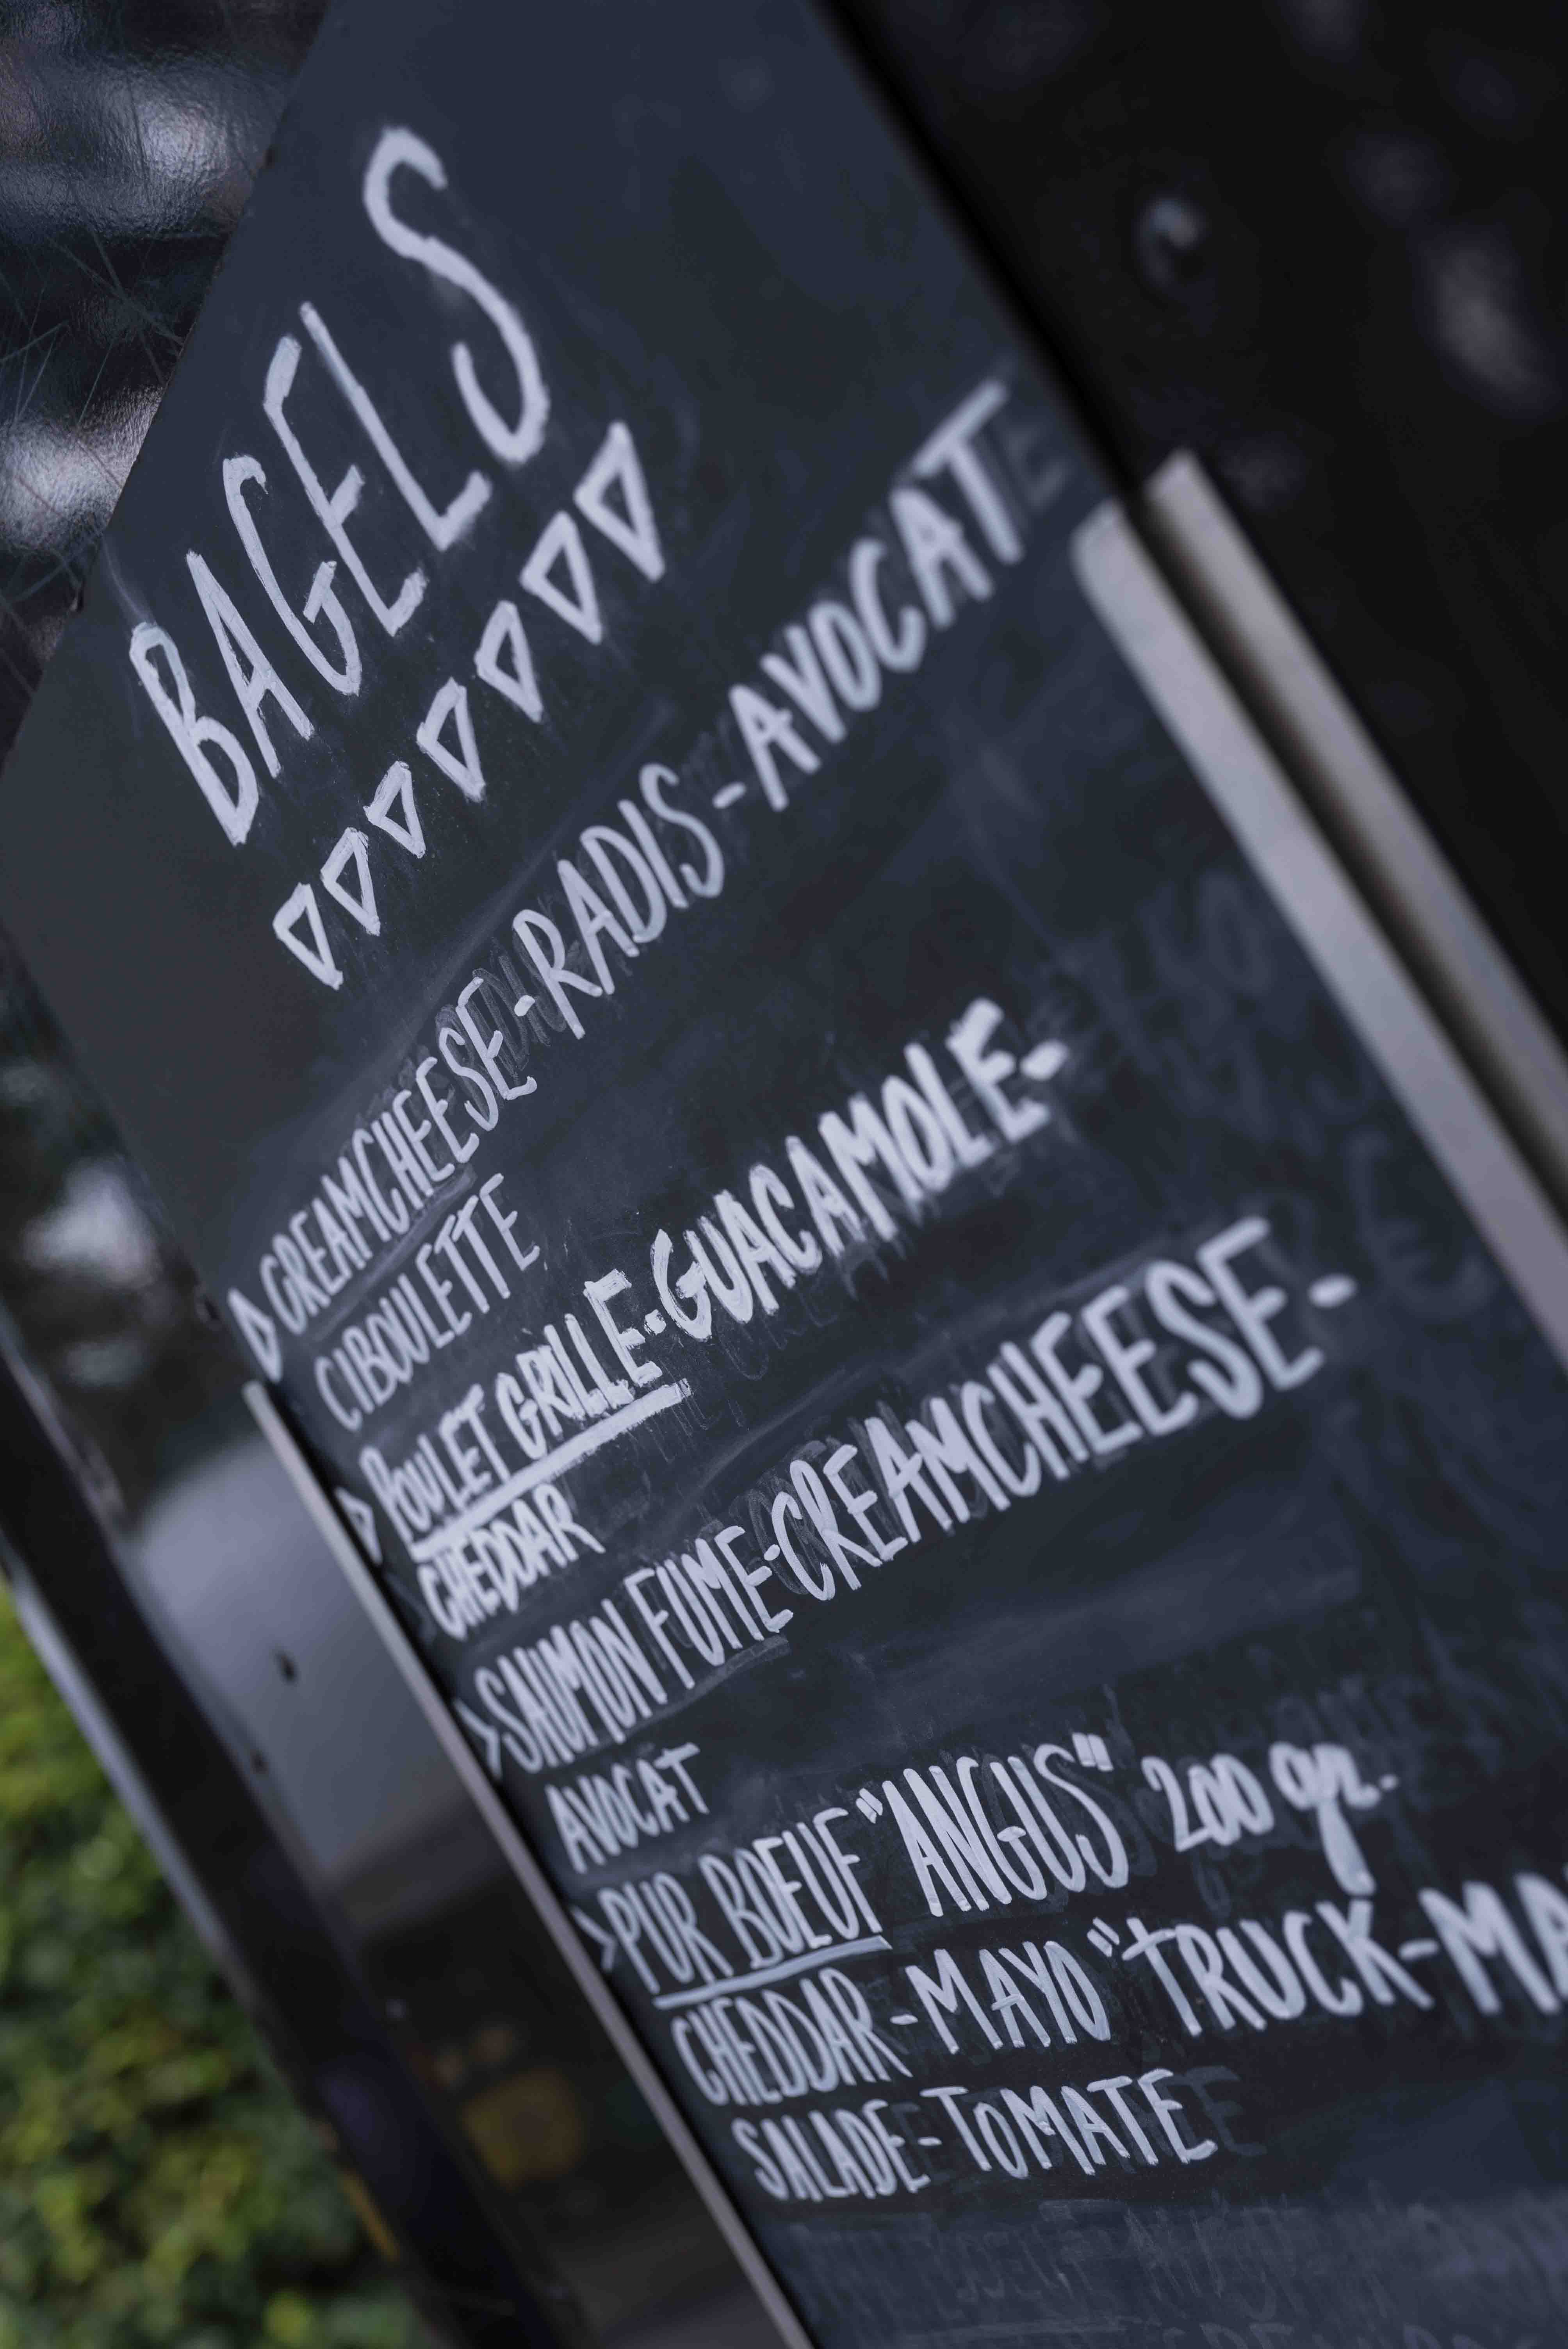 BAGELS
CREAMCHEESE-RADIS-AVOCAT
CIBOULETTE
POULET GRILLE-GUACAMOLE-
CHEDDAR
SAUMON FUME-CREAMCHEESE-
AVOCAT
PUR BOEUF "ANGUS" 200 gr.
CHEDDAR-MAYO "TRUCK-MA
SALADE-TOMATE